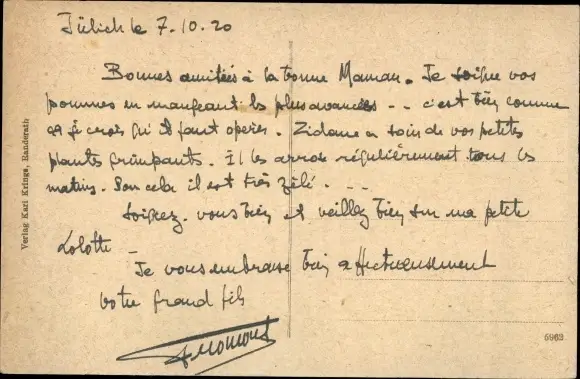 Jülich le 7.10.20
Bonnes amitiés à la bonne Maman. Je soigne vos
pommes en mangeant les plus avancées -- c'est bien comme
ça je crois qu'il faut opérer. Zidane a soin de vos petites
plantes grimpants. Il les arrose régulièrement tous les
matins. Pour cela il est très zélé. --
Soignez-vous bien et veillez bien sur ma petite
Lolotte -
Je vous embrasse bien affectueusement
votre grand fils
Verlag Karl Krings, Randerath
5962